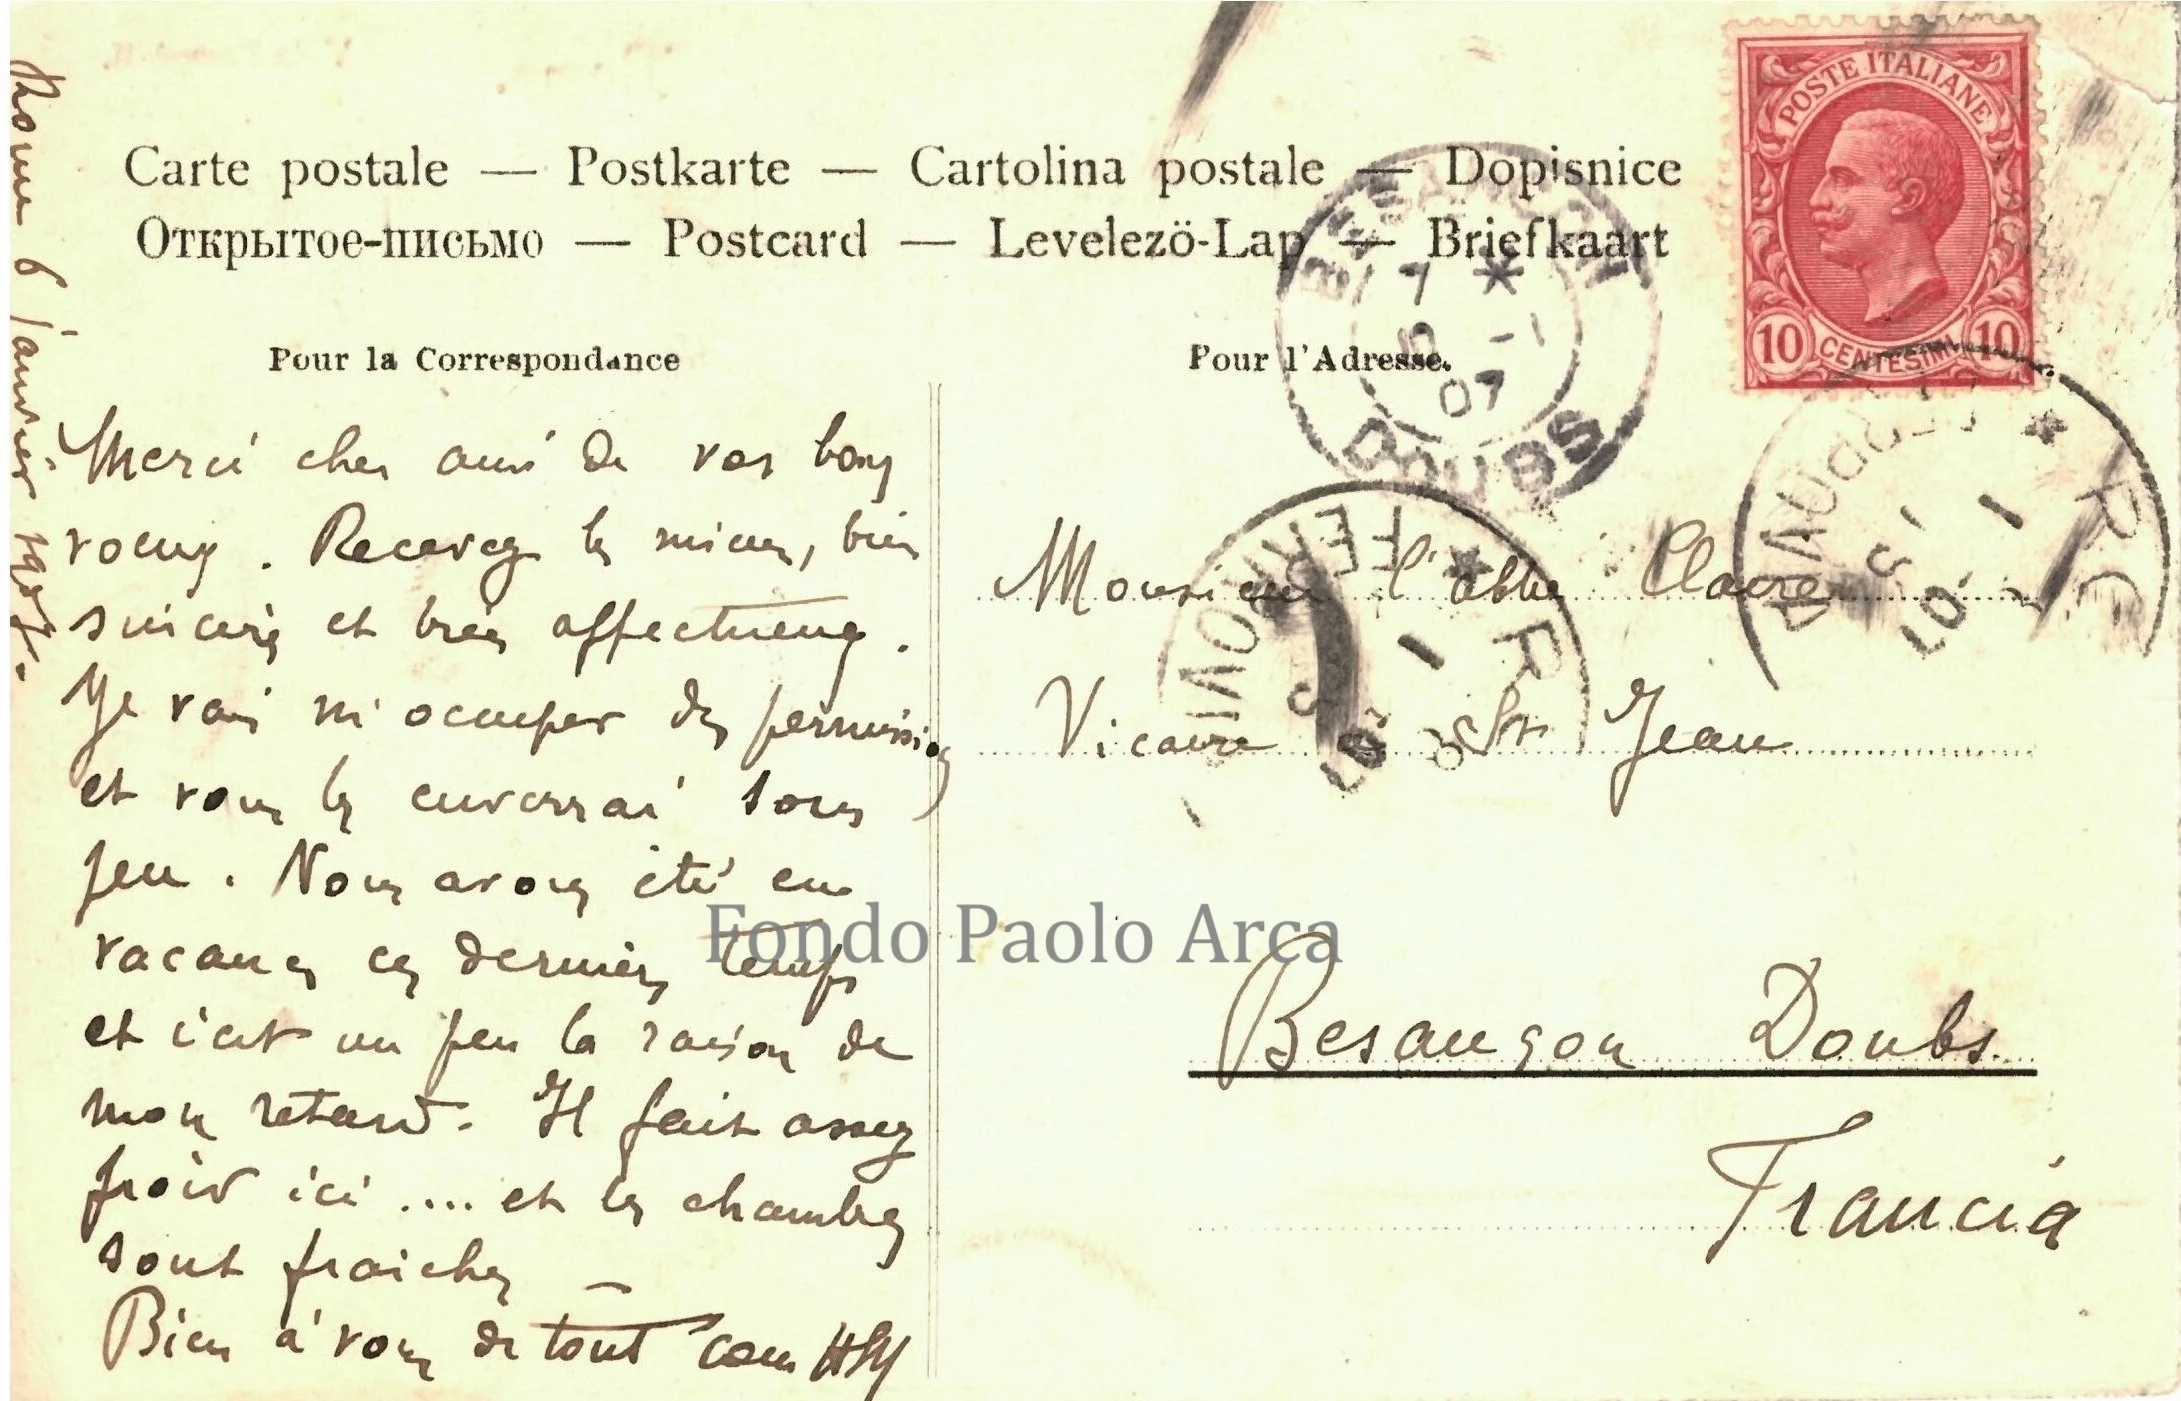 Carte postale — Postkarte — Cartolina postale — Dopisnice
Открытое-письмо — Postcard — Levelező-Lap — Briefkaart
Pour la Correspondance
Pour l'Adresse.
POSTE ITALIANE
10 CENTESIMI 10
7 *
-1
07
DOUBS
Rome 6 janvier 1907.
Merci cher ami de vos bons
voeux. Recevez les miens, bien
sincères et très affectueux.
Je vais m'occuper des permissions
et vous les enverrai sous
peu. Nous avons été en
vacances ces derniers temps
et c'est un peu la raison de
mon retard. Il fait assez
froid ici .... et les chambres
sont fraiches —
Bien à vous de tout coeur
* FERROVIA
R
1
07
* R
1
07
Monsieur l'abbé
Vicaire à St Jean
Besançon Doubs.
Francia
Fondo Paolo Arca